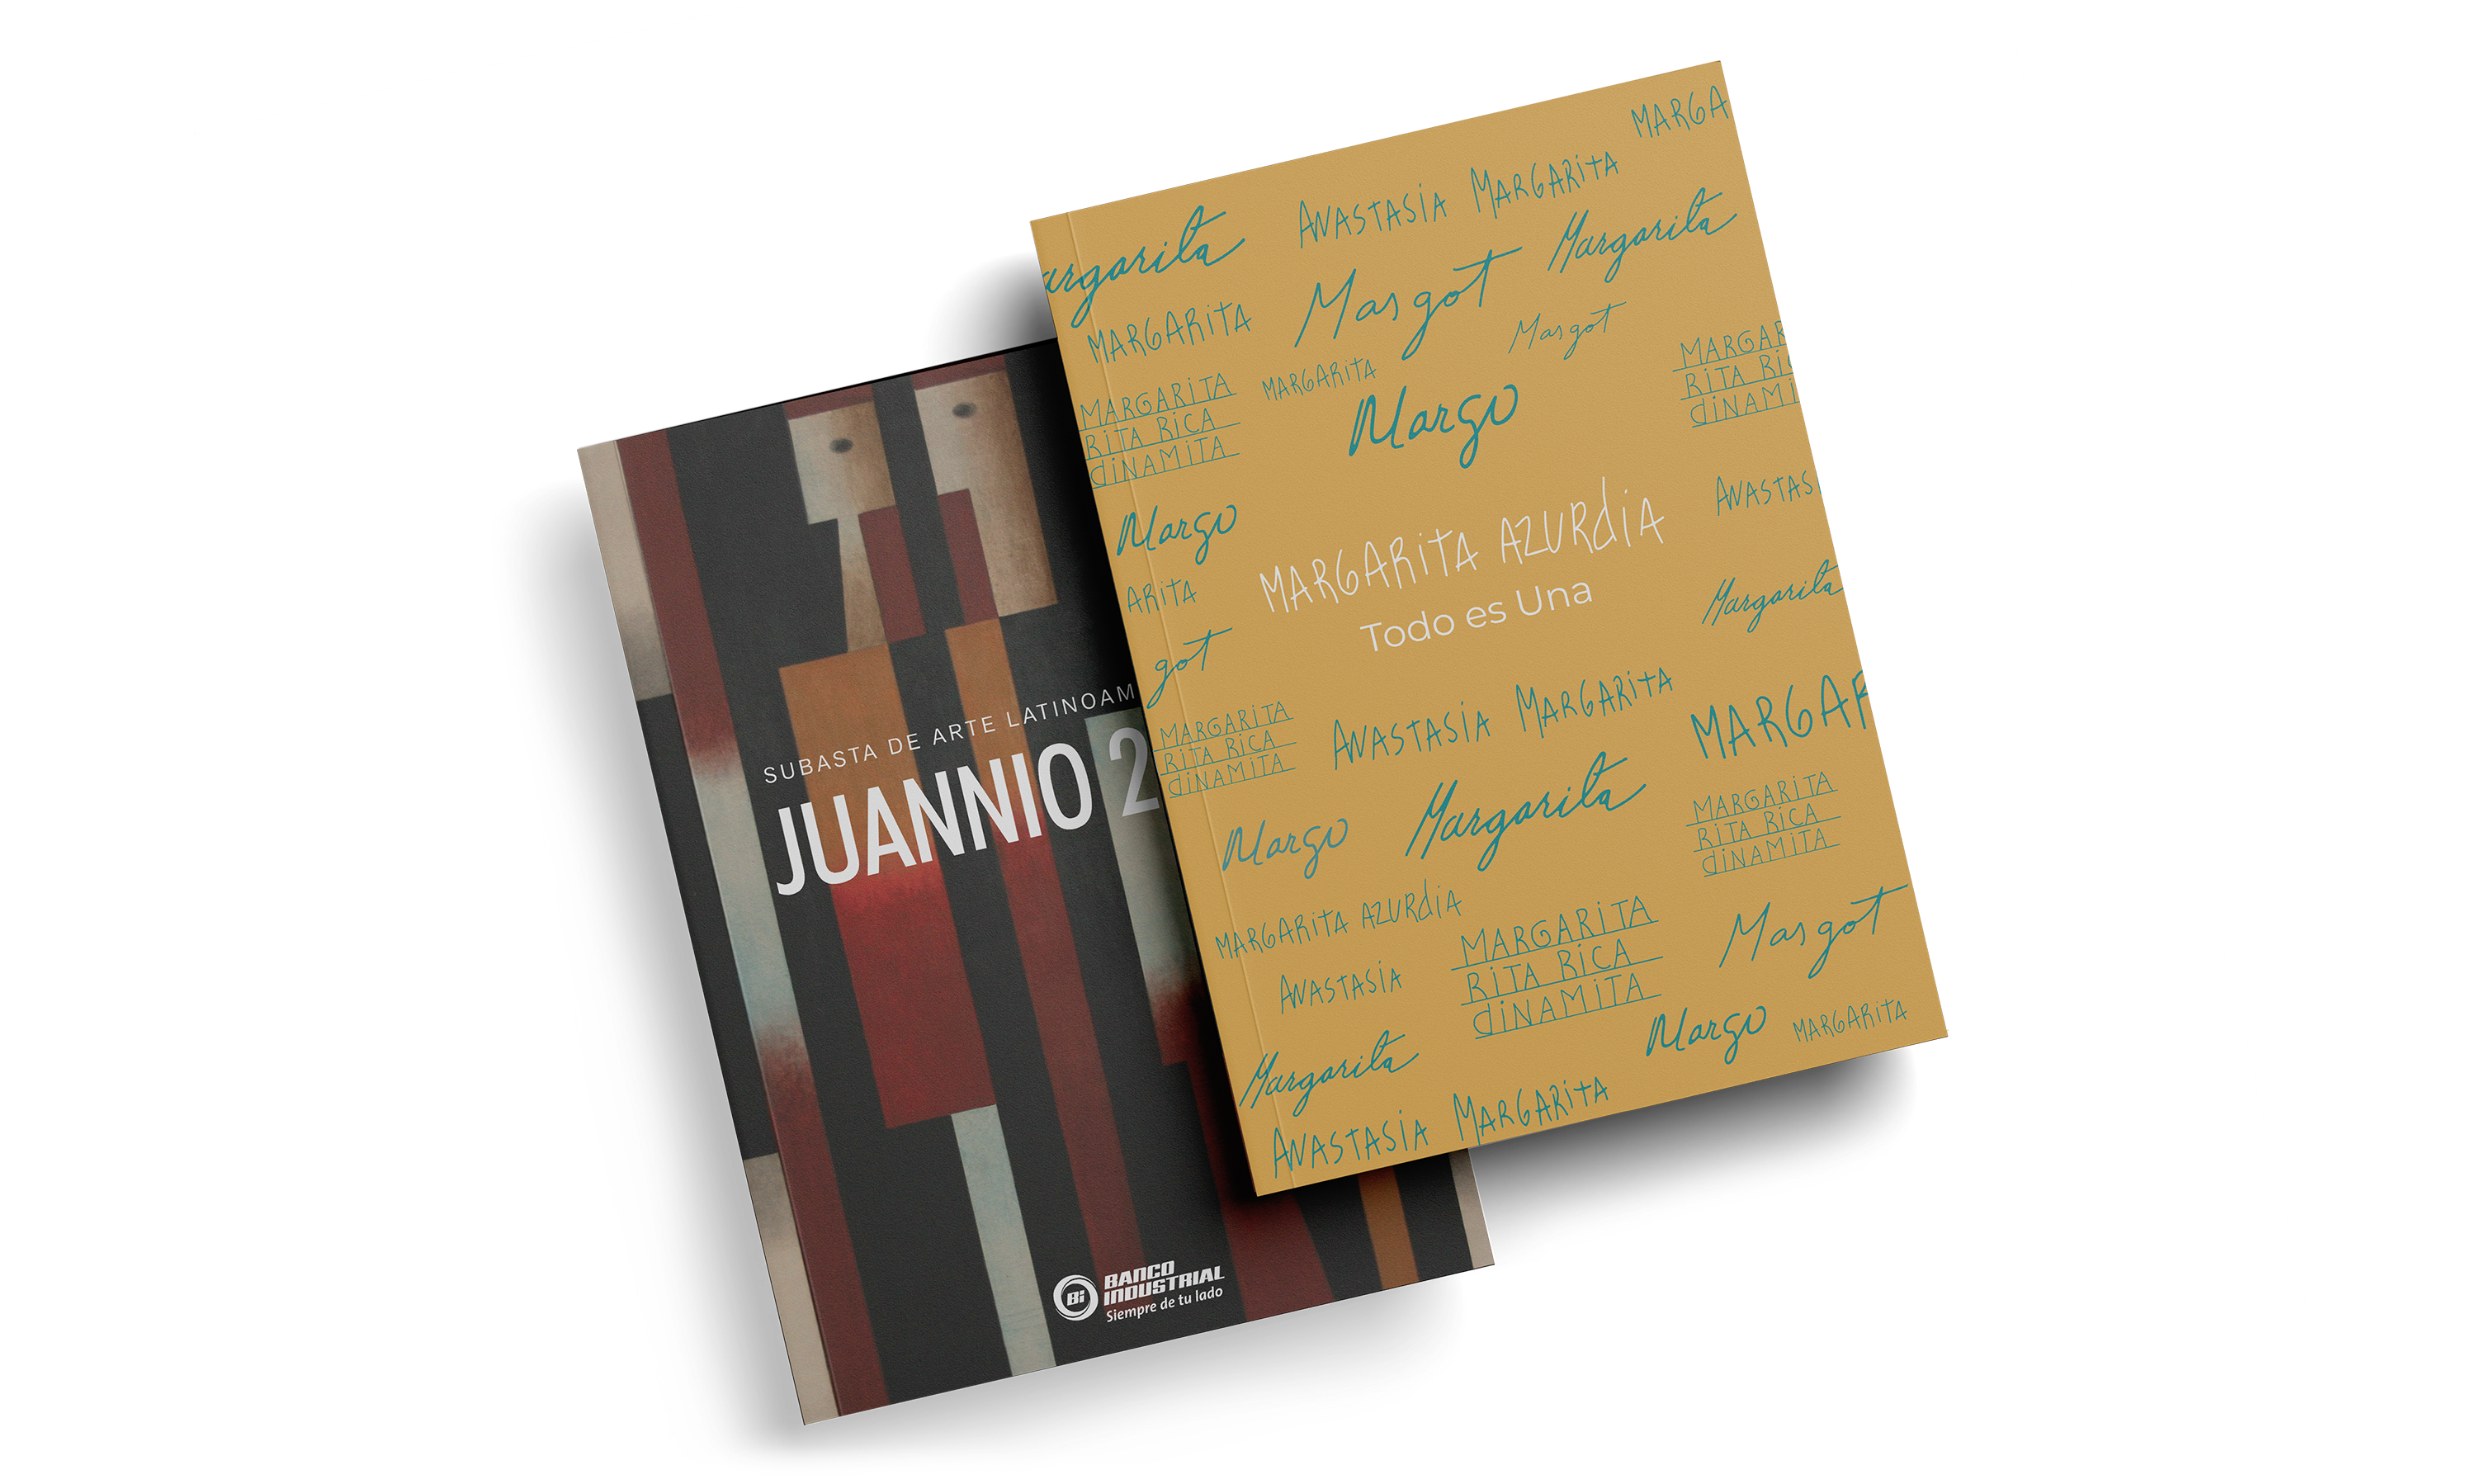 SUBASTA DE ARTE LATINOAM
JUANNIO 2
Bi
BANCO
INDUSTRIAL
Siempre de tu lado
MARGA
ANASTASÍA MARGARITA
argarita
Margarita
Margot
MARGARITA
Margot
MARGARITA
MARGARITA
RITA RICA
DINAMITA
MARGAR
RITA RI
DINAMI
Margo
ANASTAS
Margo
MARGARITA AZURDIA
Todo es Una
ARITA
Margarita
got
ANASTASÍA MARGARITA
MARGAR
MARGARITA
RITA RICA
DINAMITA
Margarita
MARGARITA
RITA RICA
DINAMITA
Margo
MARGARITA AZURDIA
MARGARITA
RITA RICA
DINAMITA
Margot
ANASTASÍA
Margo
MARGARITA
Margarita
ANASTASÍA MARGARITA